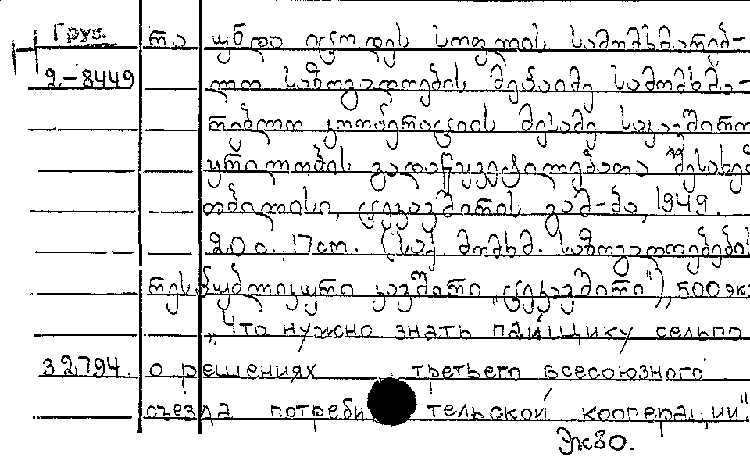 Груз.
2-8449
რა უნდა იცოდეს სოფლის სამომხმარებ-
ლო საზოგადოების მეპაიმე სამომხმა-
რებლო კოოპერაციის მესამე საკავშირო
ყრილობის გადაწყვეტილებათა შესახებ
თბილისი, ცეკავშირის გამ-ბა, 1949.
20 с. 17 cm. (საქ მომხმ. საზოგადოებების
რესპუბლიკური კავშირი „ცეკავშირი"), 500 экз
„Что нужно знать пайщику сельпо
32794. о решениях третьего всесоюзного
съезда потребительской кооперации".
Эк80.